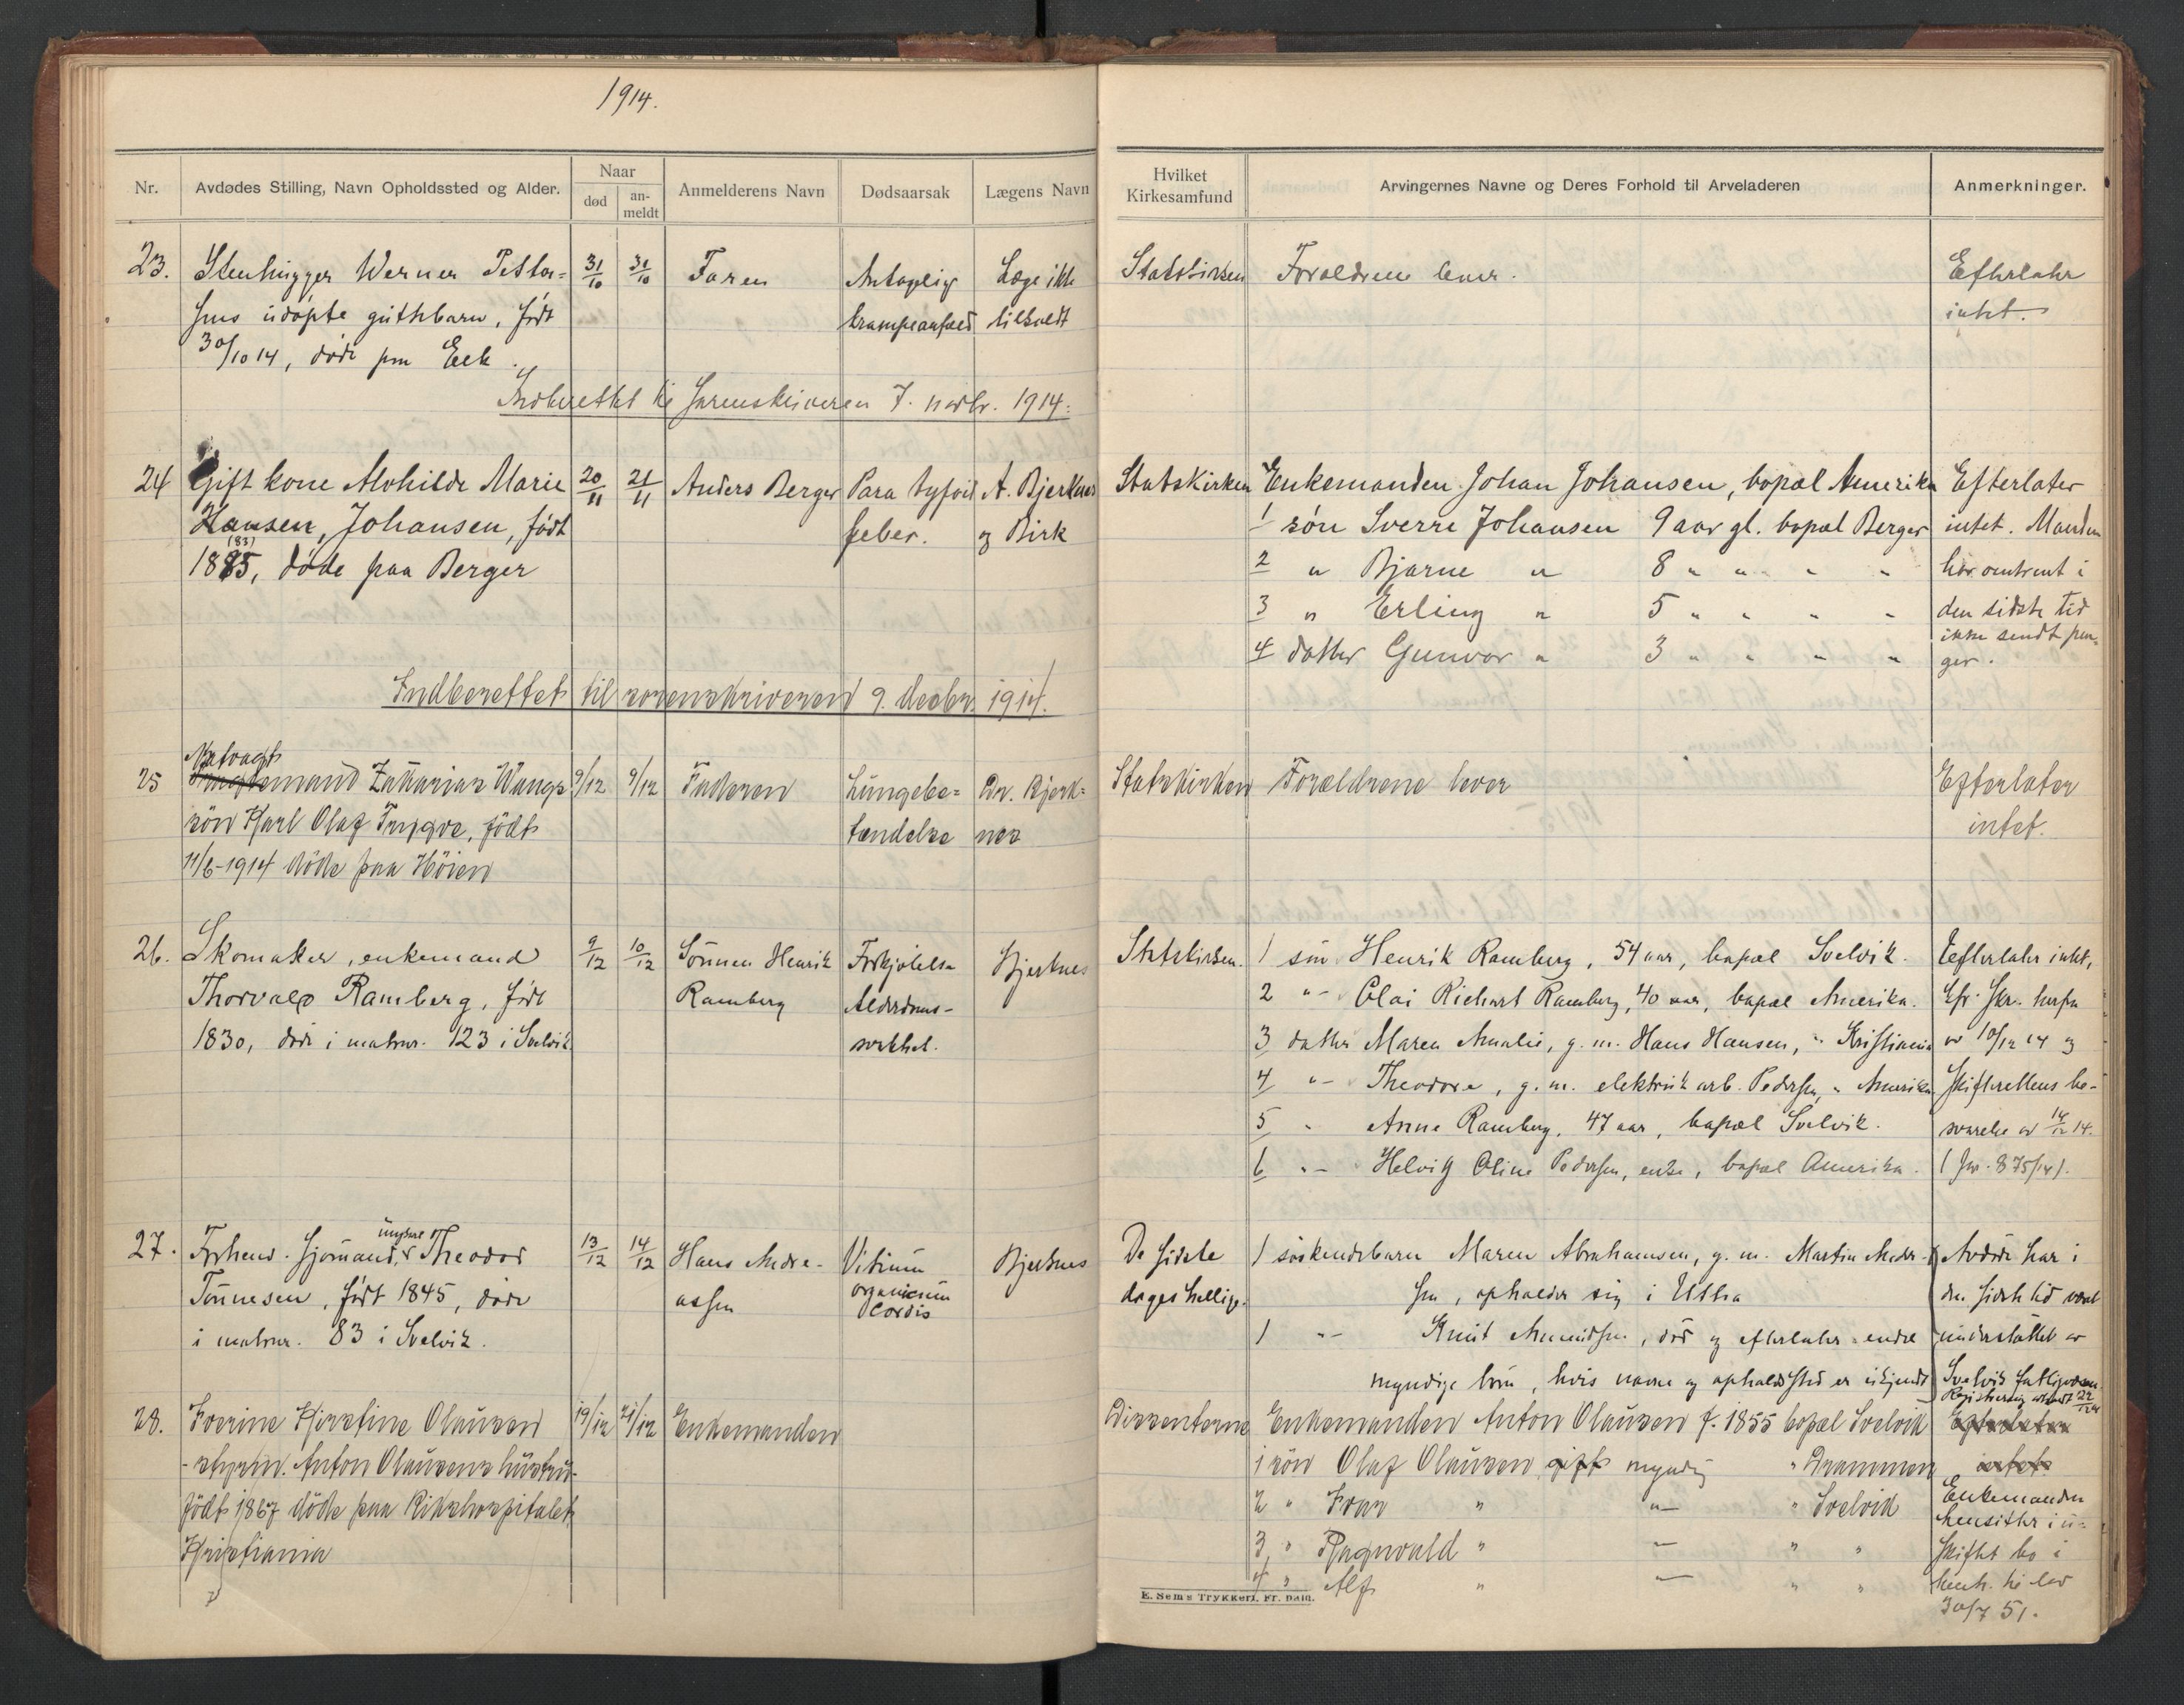 1914.
Nr.
Avdødes Stilling, Navn Opholdssted og Alder.
Naar
død
an-
meldt
Anmelderens Navn
Dødsaarsak
Lægens Navn
Hvilket
Kirkesamfund
Arvingernes Navne og Deres Forhold til Arveladeren
Anmerkninger.
23.
Stenhugger Werner Petter-
sens udøpte guttebarn, født
30/10 14, døde paa Eek.
31/10
31/10
Faren
Antagelig
krampeanfald
Læge ikke
tilkaldt
Statskirken
Forældrene lever.
Efterlater
intet.
Indberettet til Sorenskriveren 7. novbr. 1914.
24
Gift kone Alvhilde Marie
Hansen, Johansen, født
(83)
1885, døde paa Berger
20/11
21/11
Anders Berger
Para tyfoid
feber.
A. Bjerknes
og Birk
Statskirken
Enkemanden Johan Johansen, bopæl Amerika
1 søn Sverre Johansen 9 aar gl. bopæl Berger
2 " Bjarne " 8 " " " "
3 " Erling " 5 " " " "
4 datter Gunvor " 3 " " " "
Efterlater
intet. Manden
har omtrent i
den sidste tid
ikke sendt pen-
ger.
Indberettet til sorenskriveren 9. decbr. 1914.
25
Natvagt
Zakarias Wangs
søn Karl Olaf Trygve, født
11/6-1914 døde paa Höien
9/12
9/12
Faderen
Lungebe-
tændelse
Dr. Bjerk-
nes
Statskirken
Forældrene lever
Efterlater
intet.
26.
Skomaker, enkemand
Thorvald Ramberg, født
1830, døde i matrnr. 123 i Svelvik
9/12
10/12
Sønnen Henrik
Ramberg
Forkjølelse
Alderdoms-
svakhet.
Bjerknes
Statskirken.
1 søn Henrik Ramberg, 54 aar, bopæl Svelvik.
2 "- Olai Richart Ramberg, 40 aar, bopæl Amerika.
3 datter Maren Amalie, g. m. Hans Hansen, " Kristiania
4 "- Theodore, g. m. elektrisk arb. Pedersen, " Amerika
5 " Anne Ramberg, 47 aar, bopæl Svelvik.
6 "- Helvig Oline Pedersen, enke, bopæl Amerika.
Efterlater intet,
Cfr. Skr. herfra
av 10/12 14 og
Skifterettens be-
svarelse av 14/12 14.
(Jnr. 875/14).
27.
Forhenv. Sjømand, ungkarl Theodor
Tønnesen, født 1845, døde
i matrnr. 83 i Svelvik.
13/12
14/12
Hans Andre-
assen
Vitium
organicum
Cordis
Bjerknes
De sidste
dages hellige.
1 søskendebarn Maren Abrahamsen, g. m. Martin Andr-
sen, opholder sig i Utha
1 "- Knut Amundsen, død og efterlater endel
myndige børn, hvis navne og opholdssted er ukjendt
Avdøde har i
den sidste tid været
understøttet av
Svelvik fattigvæsen.
28.
Iverine Kirstine Olausen
- styrm. Anton Olausens hustru-
født 1867 døde paa Rikshospitalet
Kristiania
19/12
21/12
Enkemanden
Dissenterne
Enkemanden Anton Olausen f. 1855 bopæl Svelvik
1 søn Olaf Olausen gift myndig " Drammen
2 " Ivar " "- " Svelvik
3 " Ragnvald " "- " "
4 " Alf " "- " "
Efterlater
intet
Enkemanden
hensitter i u-
skiftet bo i
henh. til lov
30/7 51.
E. Sems Trykkeri, Fr. hald.